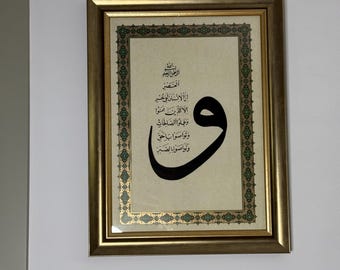 بسم الله
الرحمن الرحيم
و العصر
إن الإنسان لفي خسر
إلا الذين آمنوا
وعملوا الصالحات
وتواصوا بالحق
وتواصوا بالصبر